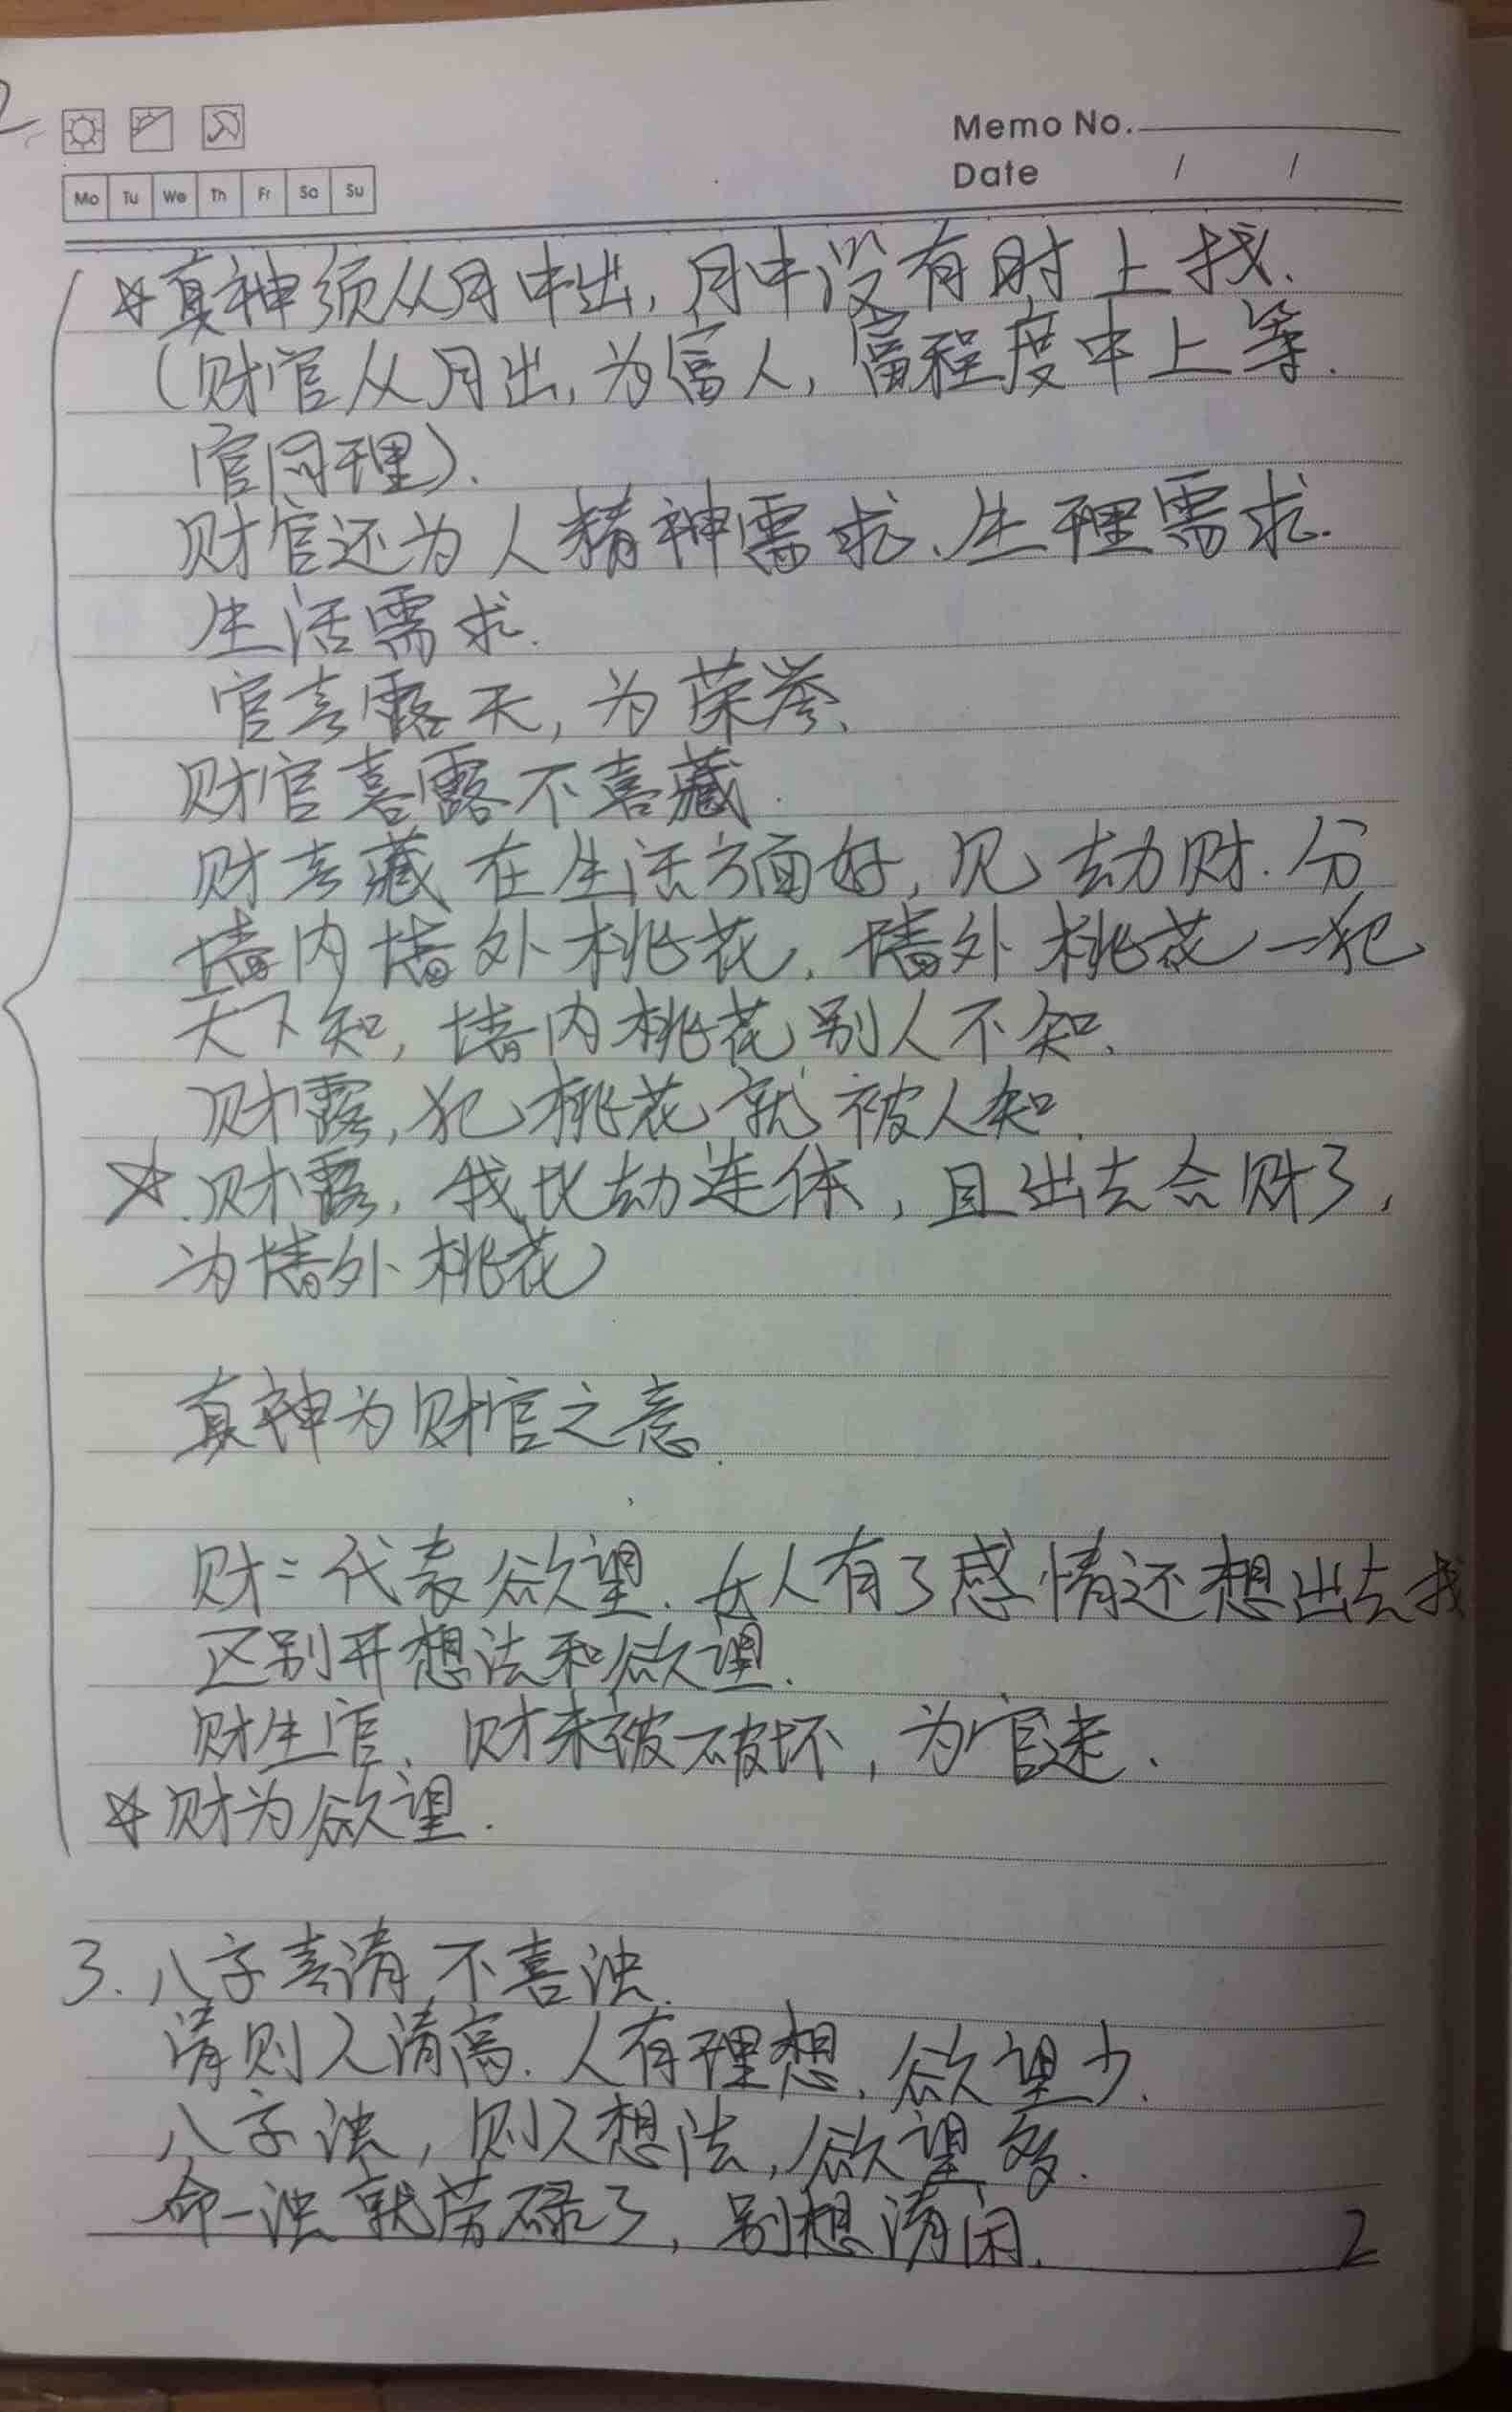 2
Memo No.
Mo Tu We Th Fr Sa Su
Date / /
☆真神须从月中出，月中没有时上找、
（财官从月出，为富人，富程度中上等.
官同理）.
财官还为人精神需求、生理需求.
生活需求.
官喜露天，为荣誉、
财官喜露不喜藏.
财喜藏在生活方面好，见劫财.分
墙内墙外桃花，墙外桃花一犯
天下知，墙内桃花别人不知、
财露，犯桃花就被人知.
☆.财露，我比劫连体，且出去合财了，
为墙外桃花
真神为财官之意.
财=代表欲望.女人有了感情还想出去找
区别开想法和欲望.
财生官、财来被破坏，为官迷、
☆财为欲望.
3.八字喜清，不喜浊.
清则人清高.人有理想，欲望少.
八字浊，则人想法，欲望多.
命一浊就劳碌了，别想清闲.
2